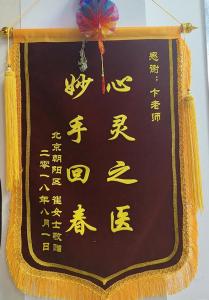 感谢：卞老师
心灵之医
妙手回春
北京朝阳区 崔女士敬赠
二零一八年八月一日